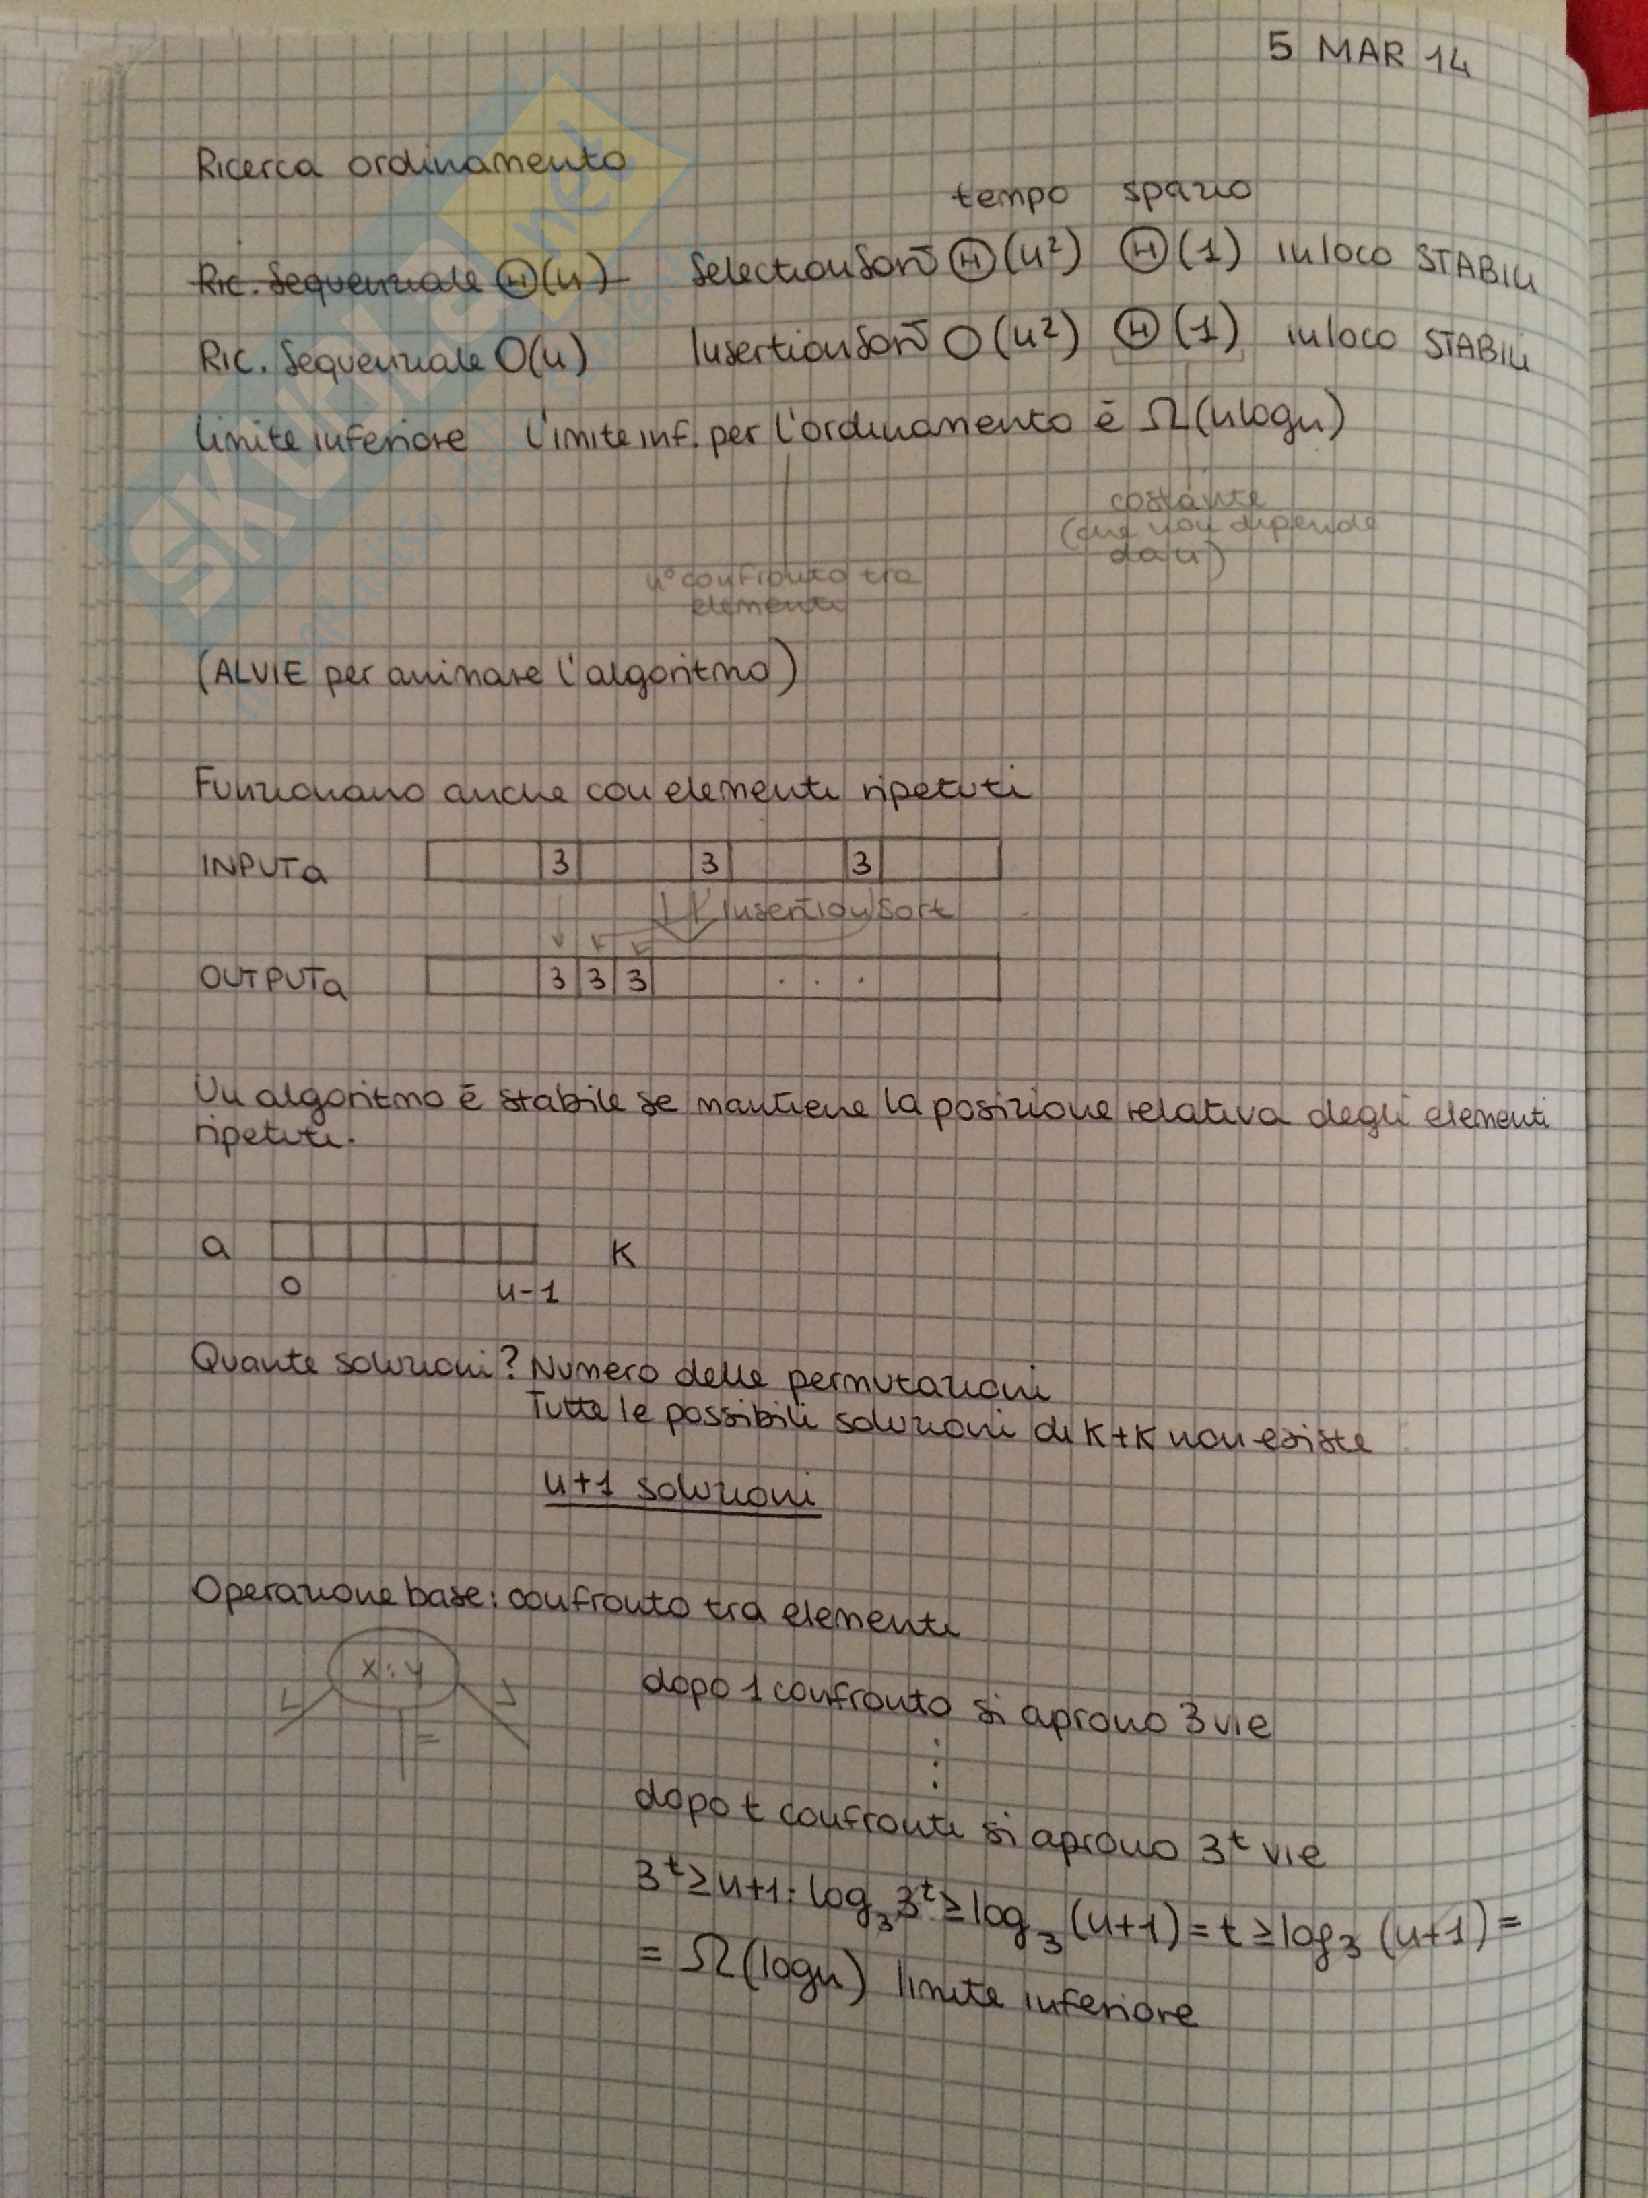 5 MAR 14
Ricerca ordinamento
tempo spazio
Ric. Sequenziale Θ(n) SelectionSort Θ(n²) Θ(1) in loco STABILI
Ric. Sequenziale O(n) InsertionSort O(n²) Θ(1) in loco STABILI
limite inferiore l'imite inf. per l'ordinamento è Ω(nlogn)
costante
(che non dipende
da n)
n° confronto tra
elementi
(ALVIE per animare l'algoritmo)
Funzionano anche con elementi ripetuti
INPUT a 3 3 3
InsertionSort
OUTPUT a 3 3 3 . . .
Un algoritmo è stabile se mantiene la posizione relativa degli elementi
ripetuti.
a K
0 n-1
Quante soluzioni? Numero delle permutazioni
Tutte le possibili soluzioni di K+K non esiste
n+1 soluzioni
Operazione base: confronto tra elementi
x:y
< = >
dopo 1 confronto si aprono 3 vie
⋮
dopo t confronti si aprono 3ᵗ vie
3ᵗ≥n+1: log₃3ᵗ≥log₃(n+1)=t≥log₃(n+1)=
=Ω(logn) limite inferiore
SKUOLA.net